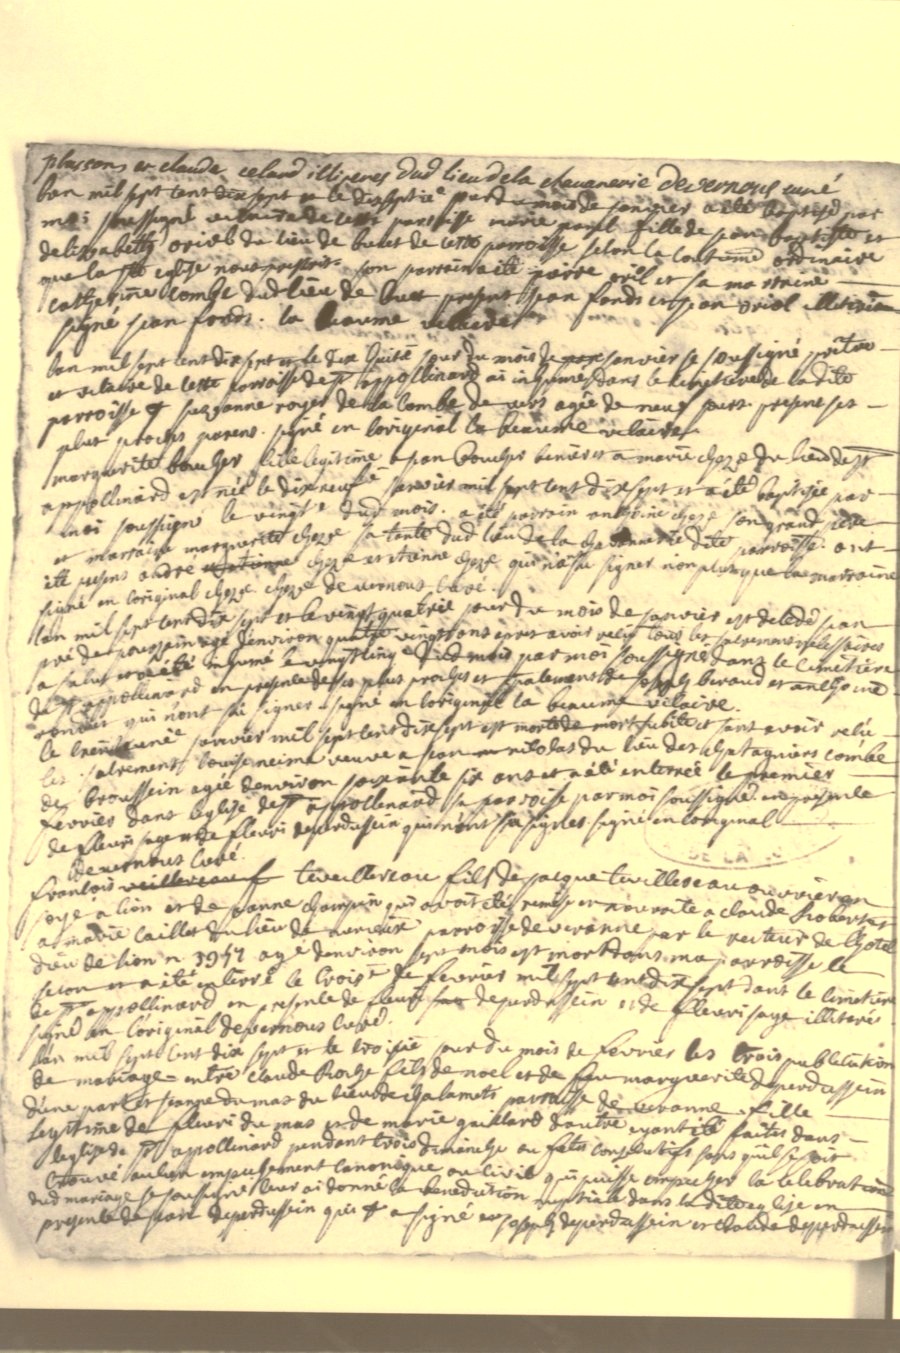 plassons et claude celard illiteres dud lieu de la chavanerie devernous curé
lan mil sept cent dix sept et le dixseptie jourd mois de janvier a été baptisé par
moi soussigné vicaire de cette parroisse marie fille de jean baptiste et
delizabeth oriol du lieu de buet de cette parroisse selon la coutume ordinaire
que la ste eglise nous prescrit. son parrain a été pierre oriol et sa marraine
catherine combe dud lieu de buet present jean fonds et jean oriol illiteré
signé jean fonds. la beaume vicaire
lan mil sept cent dix sept et le dix huitie jour du mois de janvier je soussigné prêtre
et vicaire de cette parroisse de st appollinard ai inhumé dans le cimetiere de la dite
parroisse suzanne royer de la combe de vers agée de neuf jours. presens ses
plus proches parens. signé en loriginal la beaume vicaire
marguerite boucher fille legitime a jean boucher et a marie cheze du lieu de st
appollinard est née le dixneufe janvier mil sept cent dix sept et a été baptisée par
moi soussigné le vingte dud mois. a été parrain antoine cheze son grand père
et marraine marguerite cheze sa tante dud lieu de la chavannerie dite parroisse. ont
été presens andre cheze et etienne cheze qui na su signer non plus que la marraine
signé en loriginal cheze cheze devernous curé.
lan mil sept cent dix sept et le vingt quatrie jour du mois de janvier est decedé jean
pré de poussain agé denviron quatre vingts ans après avoir reçu tous les sacremens necessaires
a salut et a été inhumé le vingt cinqe dud mois par moi soussigné dans le cimetière
de st appollinard en presence de ses plus proches et notamment de joseph beraud et anthoine
qui n'ont sû signer. signé en loriginal la beaume vicaire.
le trente unie janvier mil sept cent dix sept est morte de mort subite et sans avoir reçu
les sacrements louise veuve a jean nicolas du lieu des chataguiers combe
de broussein agée denviron soixante six ans et a été enterrée le premier
fevrier dans leglise de st appollinard sa paroisse par moi soussigné en presence
de fleuri sage et de fleuri deperdussein qui n'ont sû signer. signé en loriginal
devernous curé.
francois teveillereau fils de jacque teveillereau ouvrier en
soye a lion et de jeanne champin qui avoit été remis en nourrite a claude robert et
a marie caillet du lieu de parroisse de veranne par le recteur de lhotel
dieu de lion n 3957 agé denviron sept mois est mort dans ma parroisse le
second et a été enterré le troise de fevrier mil sept cent dix sept dans le cimetiere
de st appollinard en presence de fleuri deperdussein et de fleuri sage illiterés
signé en l'original devernous curé.
lan mil sept cent dix sept et le troisie jour du mois de fevrier les trois publications
de mariage entre claude roche fils de noel et de feu marguerite deperdussein
d'une part et jeanne du mas du lieu de chalamets parroisse de veranne fille
legitime de fleuri du mas et de marie gaillard d'autre ayant été faites dans
leglise de st appollinard pendant trois dimanches ou fetes consecutifs sans quil se soit
trouvé aucun empechement canonique ou civil qui puisse empecher la celebration
dud mariage je soussigné leur ai donné la benediction nuptiale dans la dite eglise en
presence de jean deperdussein qui a signé et joseph deperdussein et claude deperdussein
DE LA